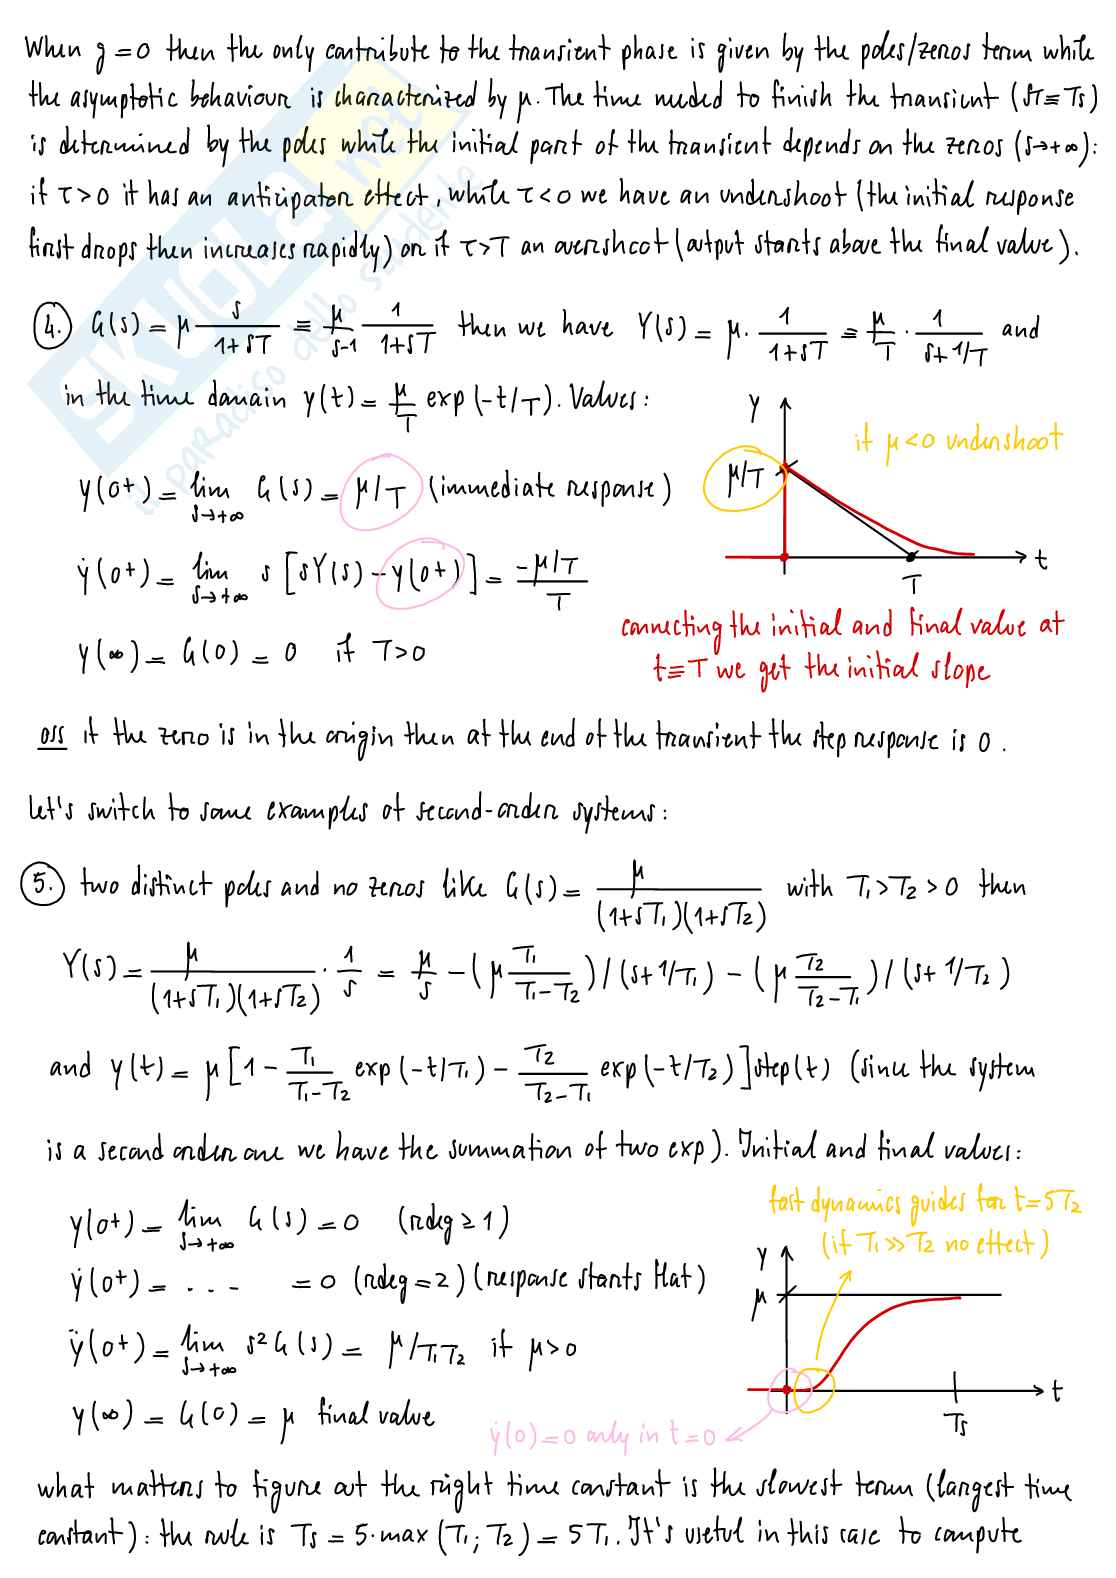 When g=0 then the only contribute to the transient phase is given by the poles/zeros term while
the asymptotic behaviour is characterized by μ. The time needed to finish the transient (ST≡Ts)
is determined by the poles while the initial part of the transient depends on the zeros (s→+∞):
if τ>0 it has an anticipator effect, while τ<0 we have an undershoot (the initial response
first drops then increases rapidly) or if τ>T an overshoot (output starts above the final value).
4. G(s) = μ s/(1+sT) ≡ μ/s-1 1/(1+sT) then we have Y(s) = μ · 1/(1+sT) ≡ μ/T · 1/(s+1/T) and
in the time domain y(t) = μ/T exp(-t/T). Values:
y(0+) = lim s→+∞ G(s) = μ/T (immediate response)
ẏ(0+) = lim s→+∞ s [sY(s) - y(0+)] = -μ/T / T
y(∞) = G(0) = 0 if T>0
y
if μ<0 undershoot
μ/T
t
T
connecting the initial and final value at
t≡T we get the initial slope
oss if the zero is in the origin then at the end of the transient the step response is 0.
let's switch to some examples of second-order systems:
5. two distinct poles and no zeros like G(s) = μ/((1+sT1)(1+sT2)) with T1>T2>0 then
Y(s) = μ/((1+sT1)(1+sT2)) · 1/s = μ/s - (μ T1/(T1-T2))/(s+1/T1) - (μ T2/(T2-T1))/(s+1/T2)
and y(t) = μ [1 - T1/(T1-T2) exp(-t/T1) - T2/(T2-T1) exp(-t/T2)] step(t) (since the system
is a second order one we have the summation of two exp). Initial and final values:
y(0+) = lim s→+∞ G(s) = 0 (rdeg≥1)
ẏ(0+) = .... = 0 (rdeg=2) (response starts flat)
ÿ(0+) = lim s→+∞ s²G(s) = μ/T1T2 if μ>0
y(∞) = G(0) = μ final value
fast dynamics guides for t=5T2
(if T1≫T2 no effect)
y
μ
t
Ts
ẏ(0)=0 only in t=0
what matters to figure out the right time constant is the slowest term (largest time
constant): the rule is Ts = 5·max(T1;T2) = 5T1. It's useful in this case to compute
SKUOLA.net
il paradiso dello studente